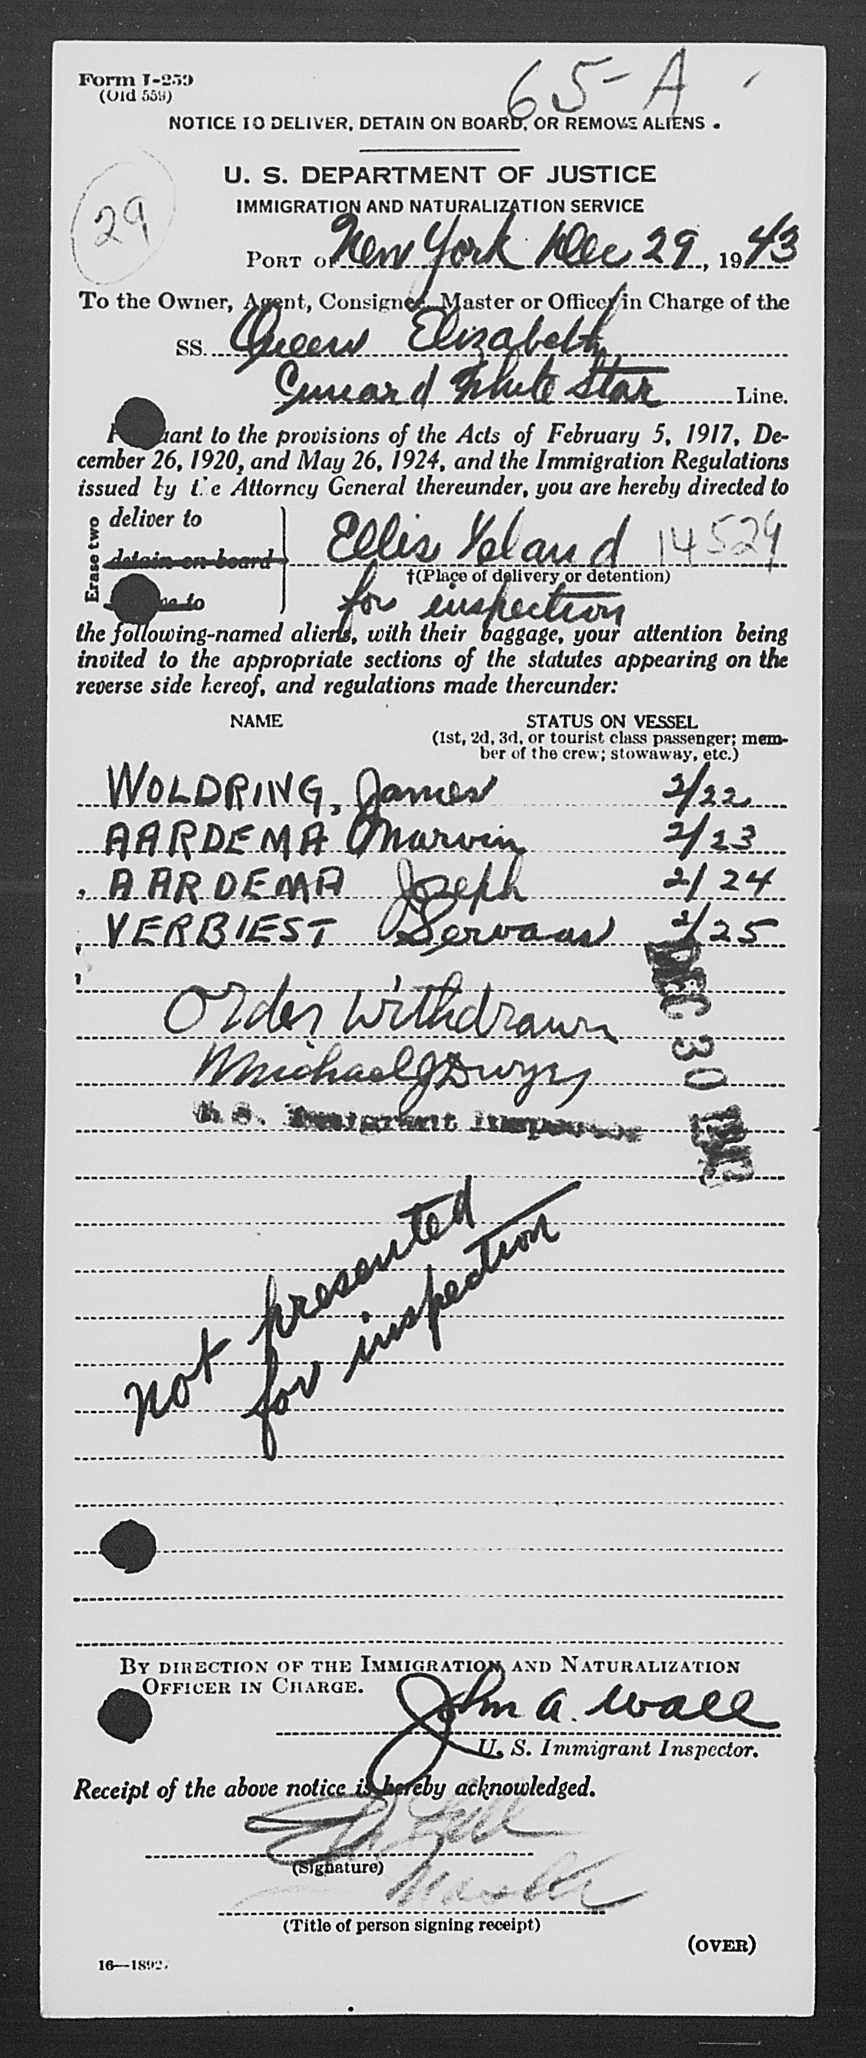 65-A
Form I-259
(Old 559)
NOTICE TO DELIVER, DETAIN ON BOARD, OR REMOVE ALIENS
29
U. S. DEPARTMENT OF JUSTICE
IMMIGRATION AND NATURALIZATION SERVICE
PORT OF New York Dec 29, 1943
To the Owner, Agent, Consignee, Master or Officer in Charge of the
SS. Queen Elizabeth
Cunard White Star Line.
Pursuant to the provisions of the Acts of February 5, 1917, De-
cember 26, 1920, and May 26, 1924, and the Immigration Regulations
issued by the Attorney General thereunder, you are hereby directed to
Erase two
deliver to
detain on board
Ellis Island 14529
†(Place of delivery or detention)
for inspection
the following-named aliens, with their baggage, your attention being
invited to the appropriate sections of the statutes appearing on the
reverse side hereof, and regulations made thereunder:
NAME STATUS ON VESSEL
(1st, 2d, 3d, or tourist class passenger; mem-
ber of the crew; stowaway, etc.)
WOLDRING, James 2/22
AARDEMA Marvin 2/23
AARDEMA Joseph 2/24
VERBIEST Servaas 2/25
Order Withdrawn
Michael J Dwyer
U. S. Immigrant Inspector
DEC 30
not presented
for inspection
BY DIRECTION OF THE IMMIGRATION AND NATURALIZATION
OFFICER IN CHARGE.
John A. Wall
U. S. Immigrant Inspector.
Receipt of the above notice is hereby acknowledged.
(Signature)
Master
(Title of person signing receipt)
(OVER)